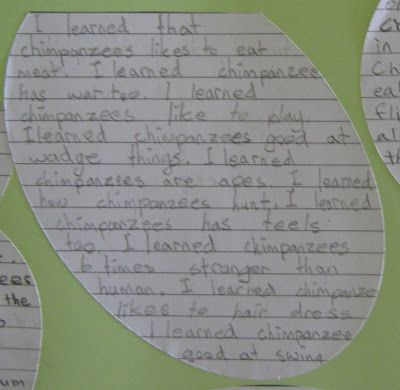 I learned that
chimpanzees likes to eat
meat. I learned chimpanzee
has war too. I learned
chimpanzees like to play.
I learned chimpanzees good at
wadge things. I learned
chimpanzees are apes. I learned
how chimpanzees hunt. I learned
chimpanzees has feels
too. I learned chimpanzees
6 times stronger than
human. I learned chimpanze
likes to hair dress
I learned chimpanzee
good at swing
in
the